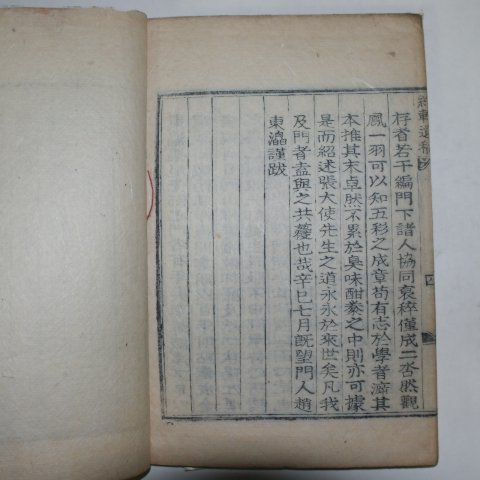 存者若干編門下諸人協同裒稡僅成二沓然觀
鳳一羽可以知五彩之成章苟有志於學者泝其
本推其末卓然不累於臭味酣豢之中則亦可據
是而紹述張大使先生之道永永於來世矣凡我
及門者盍與之共蘉也哉辛巳七月旣望門人趙
東瀛謹跋